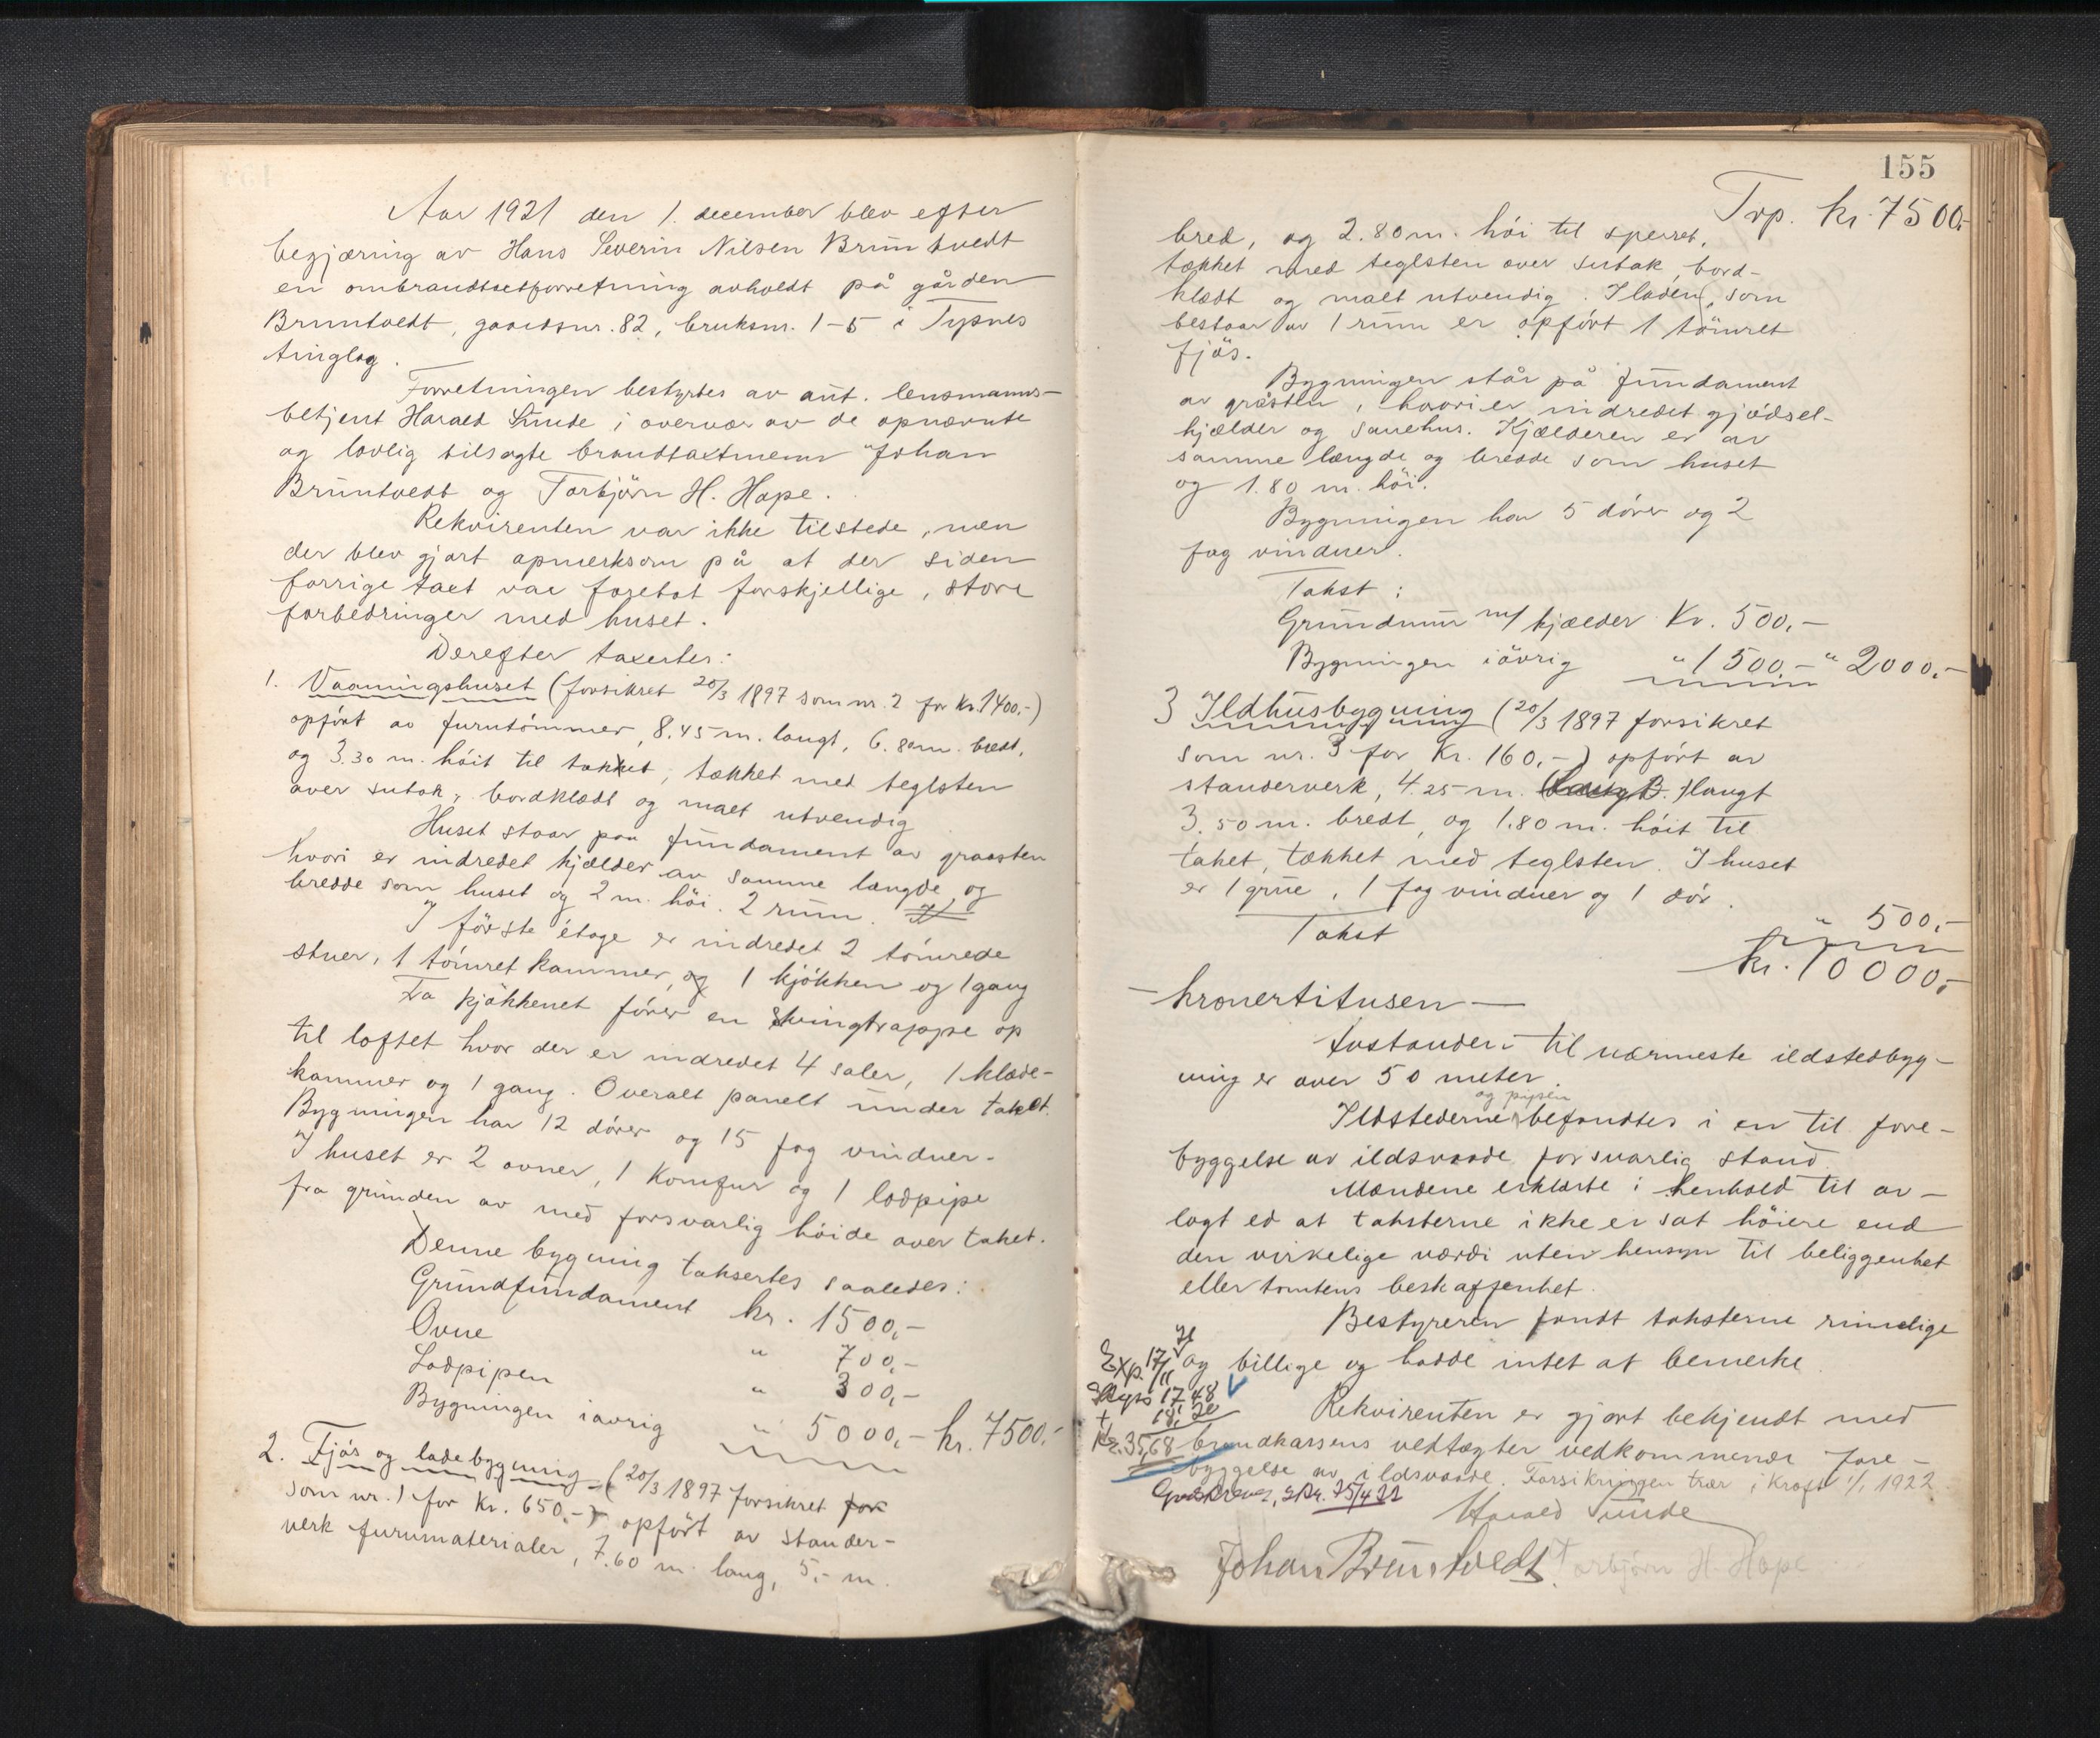 Aar 1921 den 1. december blev efter
begjæring av Hans Severin Nilsen Bruntvedt
en ombrandtaxtforretning avholdt på gården
Bruntvedt, gaardsnr. 82, bruksnr. 1-5 i Tysnes
tinglag.
Forretningen bestyrtes av aut. lensmanns-
betjent Harald Sunde i overvær av de opnævnte
og lovlig tilsagte brandtaxtmenn Johan
Bruntvedt og Torbjörn H. Hope.
Rekvirenten var ikke tilstede, men
der blev gjort opmerksom på at der siden
forrige taxt var foretat forskjellige, store
forbedringer med huset.
Derefter taxertes:
1. Vaaningshuset (forsikret 20/3 1897 som nr. 2 for Kr. 1400,-)
opført av furutömmer, 8.45 m. langt, 6.80 m. bredt,
og 3.30 m. höit til taket, tækket med teglsten
over sutak, bordklædt og malt utvendig
Huset staar paa fundament av graasten
hvori er indredet kjælder av samme længde og
bredde som huset og 2 m. höi. 2 rum.
I förste étage er indredet 2 tömrede
stuer, 1 tömret kammer, og 1 kjökken og 1 gang
Fra kjökkenet förer en svingtrappe op
til loftet hvor der er indredet 4 saler, 1 klæde-
kammer og 1 gang. Overalt panelt under taket.
Bygningen har 12 dörer og 15 fag vinduer.
I huset er 2 ovner, 1 Komfur og 1 lodpipe
fra grunden av med forsvarlig höide over taket.
Denne bygning taksertes saaledes:
Grundfundament kr. 1500,-
Ovne " 700,-
Lodpipen " 300,-
Bygningen iövrig " 5000,- kr. 7500.-
2. Fjös og ladebygning (20/3 1897 forsikret for
som nr. 1 for Kr. 650,-) opfört av stander-
verk furumaterialer, 7.60 m. lang, 5,- m.
155
Trp. kr. 7500,-
bred, og 2.80 m. höi til sperret,
tækket med teglsten over sutak, bord-
klædt og malt utvendig. I laden, som
bestaar av 1 rum er opfört 1 tömret
fjös.
Bygningen står på fundament
av gråsten, hvori er indredet gjödsel-
kjælder og sauehus. Kjælderen er av
samme længde og bredde som huset
og 1.80 m. höi.
Bygningen har 5 dörer og 2
fag vinduer.
Takst:
Grundmur m/ kjælder Kr. 500,-
Bygningen iövrig " 1500,- " 2000,-
3 Ildhusbygning (20/3 1897 forsikret
som nr. 3 for Kr. 160,-) opfört av
standerverk, 4.25 m. langt
3.50 m. bredt, og 1.80 m. höit til
taket, tækket med teglsten. I huset
er 1 grue, 1 fag vinduer og 1 dör.
Takst " 500,-
Kr. 10000,-
- kronertitusen -
Avstanden til nærmeste ildstedbyg-
ning er over 50 meter.
og pipen
Ildstederne befandtes i en til fore-
byggelse av ildsvaade forsvarlig stand
Mændene erklærte i henhold til av-
lagt ed at taksterne ikke er sat höiere end
den virkelige værdi uten hensyn til beliggenhet
eller tomtens beskaffenhet.
Bestyreren fandt taksterne rimelige
og billige og hadde intet at bemerke
Rekvirenten er gjort bekjendt med
brandkassens vedtægter vedkommende fore-
byggelse av ildsvaade. Forsikringen trær i Kraft 1/1 1922
Exp. 17/11
Skyss 17.48
18,20
Kr. 35,68
25/4 22
Harald Sunde
Johan Bruntvedt. Torbjörn H. Hope